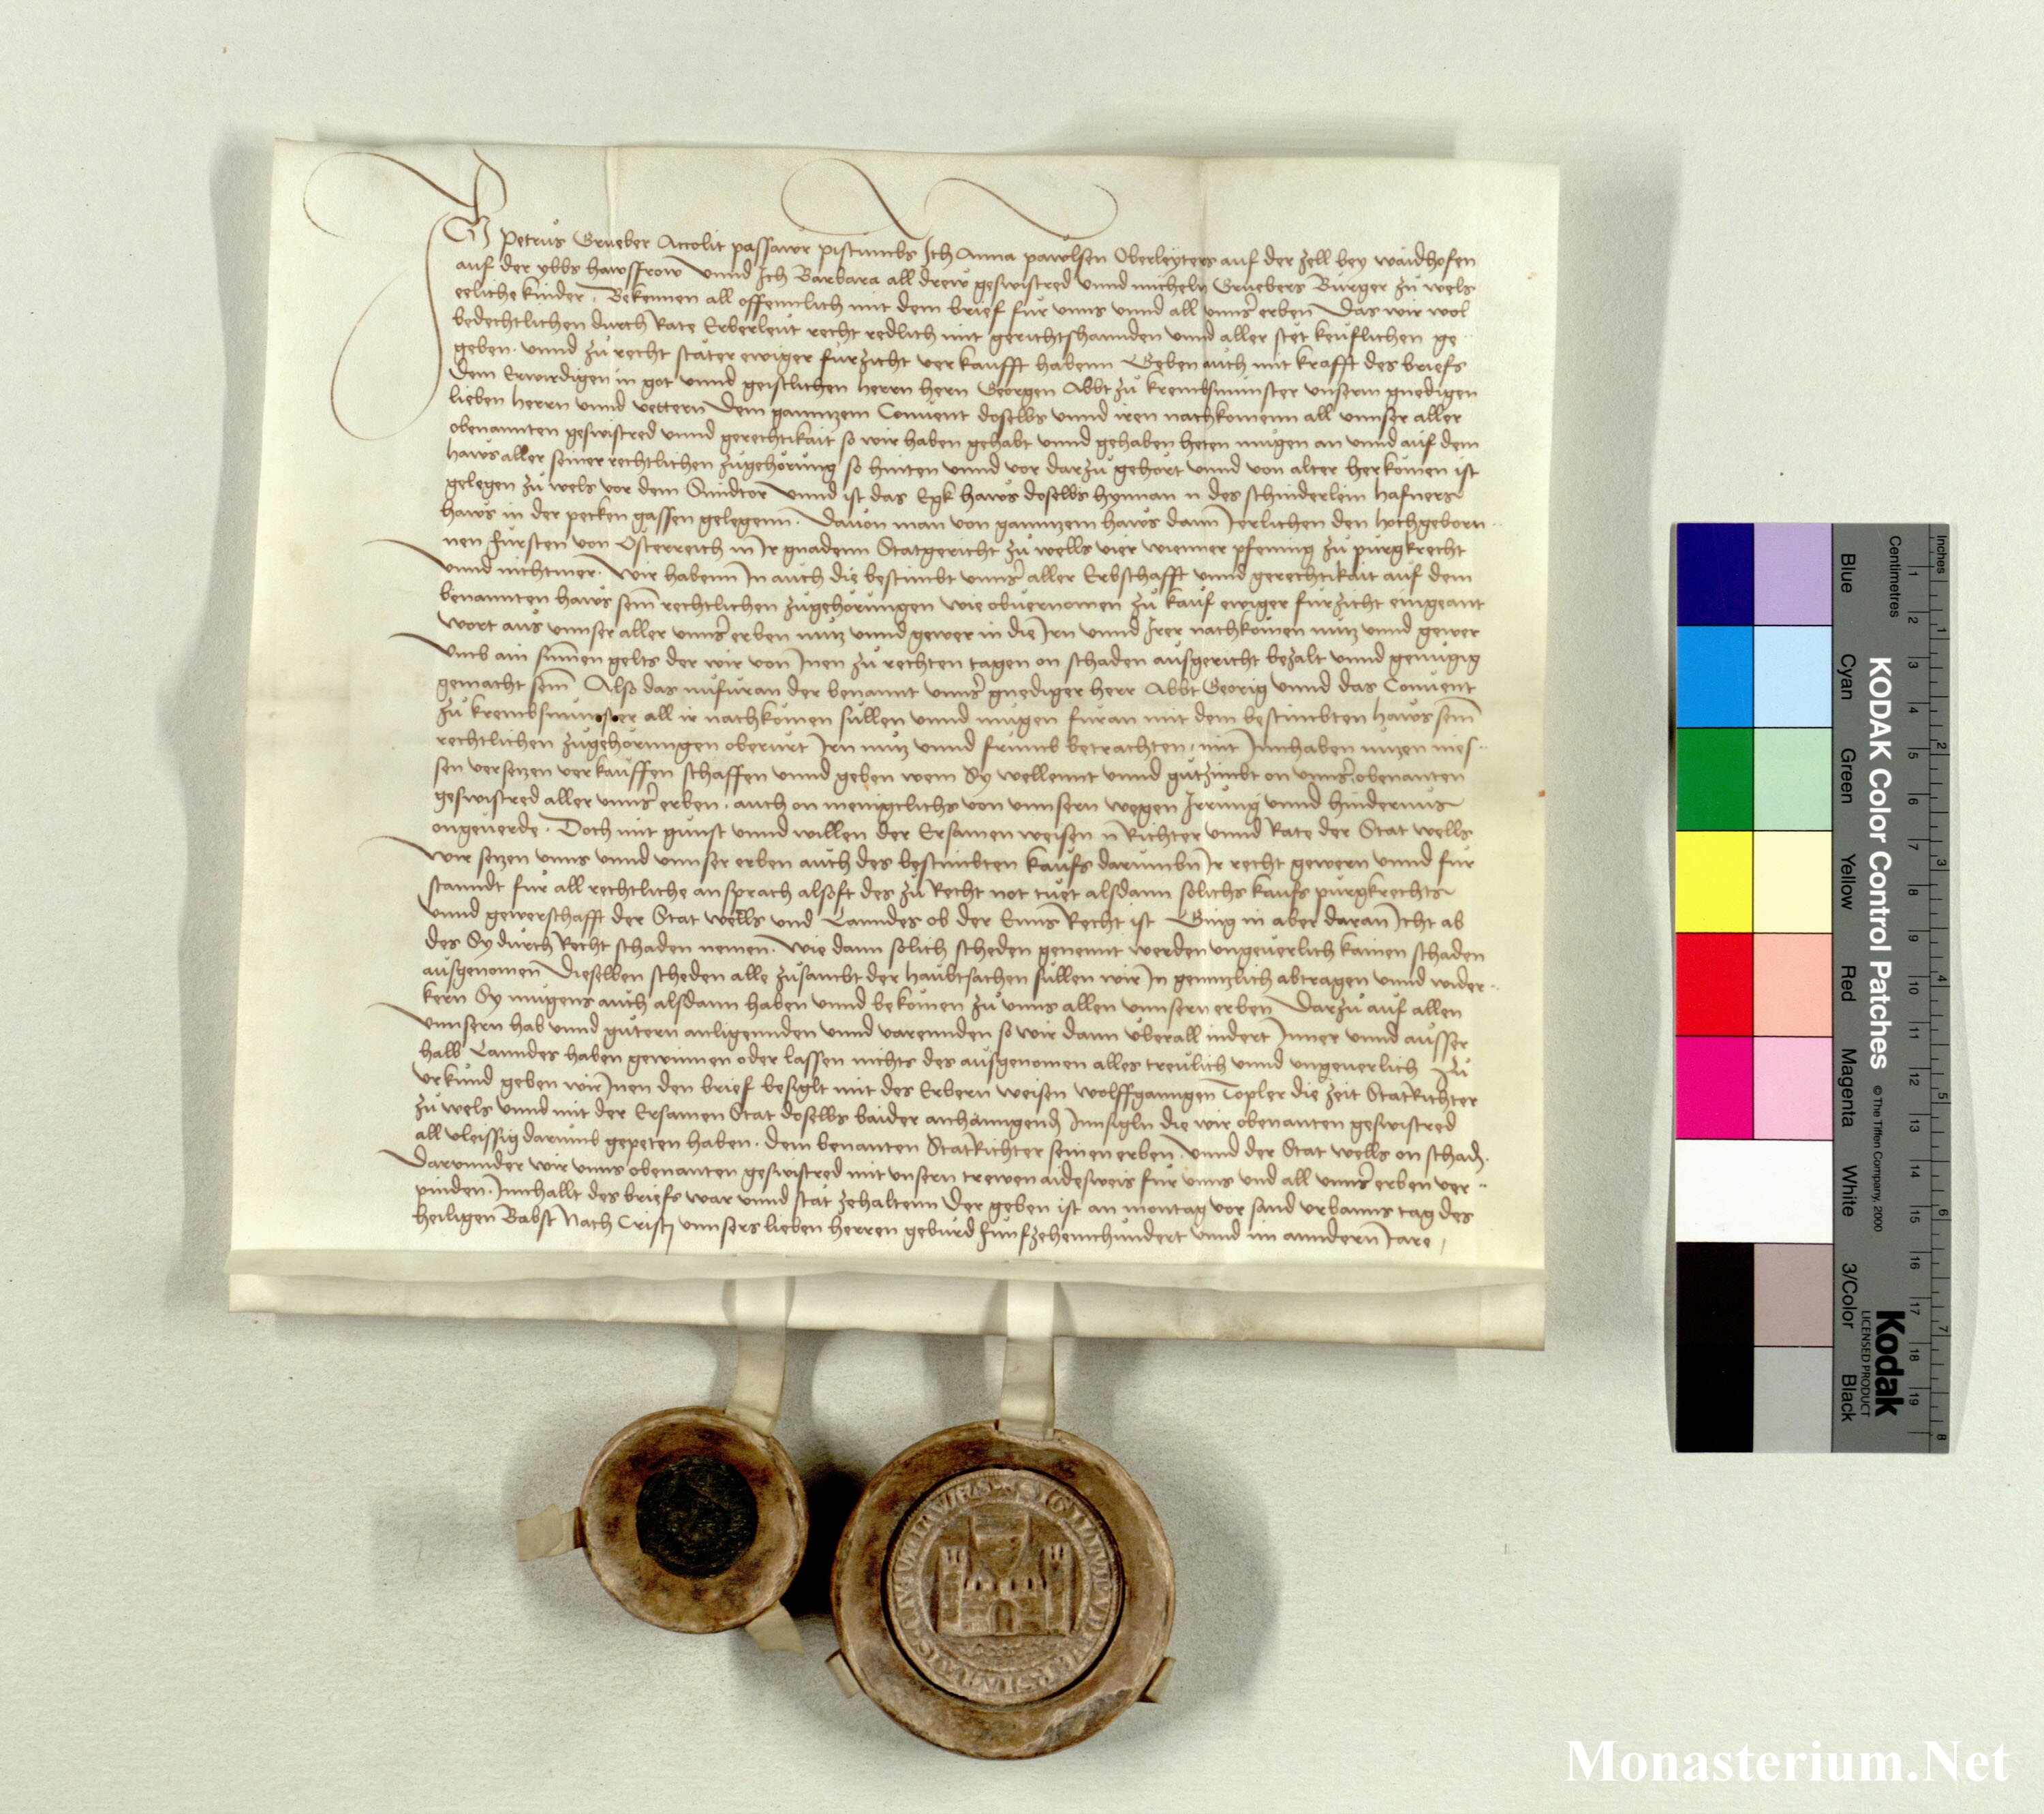 Ich Petrus Grueber Accolit passawr pistumbs Ich Anna pawlsen Oberleyters auf der zell bey waidhofen
auf der ybbs hawsfrow Vnnd Ich Barbara all drew geswistred vnnd micheln Gruebers Burger zu wels
eeliche kinder. Bekennen all offenntlich mit dem brief fur vnns vnnd all vnnser erben Das wir wol
bedechtlichen durch Rate Erberleut recht redlich mit gerichtshannden vnnd aller stet keuflichen ge
geben. vnnd zu recht stater ewiger furzicht verkaufft habenn Geben auch mit krafft des briefs
dem Erwirdigen in got vnnd geistlichen herrn hern Georgen Abbt zu krembsmunster vnserm gnedigen
lieben herrn vnnd vettern Dem gannzem Conuent doselbs vnnd iren nachkomenn all vnnser aller
obenannten geswistred vnnd gerechtikait so wir haben gehabt vnnd gehaben heten mugen an vnnd auf dem
haws aller seiner rechtlichen zugehorung so hinten vnnd vor darzu gehort vnnd von alter herkomen ist
gelegen zu wels vor dem Smidtor Vnnd ist das Egk haws doselbs hynnan n des schinderlein hafners
haws in der pecken gassen gelegenn. Dauon man von gannzem haws dann Ierlichen den hochgeborn
nen fursten von Osterreich in Ir gnadenn Statgericht zu wells vier wienner pfening zu purgkrecht
Vnnd nichtmer. Wir habenn In auch die bestimbt vnnser aller Erbschafft vnnd gerechtikait auf dem
benannten haws sein rechtlichen zugehorungen wie obuernomen zu kauf ewiger furzicht eingeant
wort aus vnnser aller vnnser erben nutz vnnd gewer in die Irn vnnd Irer nachkomen nutz vnnd gewer
Vmb ain sumen gelts der wir von Inen zu rechten tagen on schaden ausgericht bezalt vnnd genugig
gemacht sein Also das nufuran der benannt vnnser gnediger herr Abbt Georig vnnd das Conuent
zu krembsmunster all ir nachkomen sullen vnnd mugen furan mit dem bestimbten haws sein
rechtlichen zugehorungen oberurt Irn nutz vnnd frumb betrachten. mit Innhaben nuzen nies
sen versezen verkauffen schaffen vnnd geben wem Sy wellennt vnnd gutzimbt on vnnser obenanten
geswistred aller vnnser erben. auch on menigclichs von vnnsern wegen Irrung vnnd hindernus
ongeuerde. Doch mit gunst vnnd willen der Ersamen weisen n Richter vnnd Rate der Stat wells
Wir sezen vnns vnnd vnnser erben auch des bestimbten kaufs darumbn Ir recht gewern vnnd fur
stanndt fur all rechtliche ansprach alsoft des zu Recht not tuet alsdann solichs kaufs purgkrechts
Vnnd gewerschafft der Stat wells vnd Lanndes ob der Enns Recht ist Ging in aber daran Icht ab
des Sy durch Recht schaden nemen. wie dann solich scheden genennt werden vngeuerlich kainen schaden
ausgenomen Dieselben scheden alle zusambt der haubtsachen sullen wir In gennzlich abtragen vnnd wider
kern Sy mugens auch alsdann haben vnnd bekomen zu vnns allen vnnsern erben Darzu auf allen
Vnnsern hab vnnd gutern anligennden vnnd varennden so wir dann vberall indert Inner vnnd ausser
halb Lanndes haben gewinnen oder lassen nichts des ausgenomen alles treulich vnnd vngeuerlich Zu
vrkund geben wir Inen den brief besiglt mit des Erbern weisen wolffganngen Topler die zeit StatRichter
zu wels vnnd mit der Ersamen Stat doselbs baider anhanngend Innsigln die wir obenanten geswistred
all vleissig darumb gepeten haben. dem benanten StatRichter seinen erben. vnnd der Stat wells on schad.
Darunnder wir vnns obenanten geswistred mit vnsern trewen aidesweis fur vnns vnd all vnnser erben ver
pinden. Innhallt des briefs war vnnd stat zehaltenn Der geben ist an montag vor sand vrbanns tag des
heiligen Babst Nach Cristj vnnsers lieben herren geburd funfzehennhundert vnnd im anndern Iare
Inches
Centimetres
KODAK Color Control Patches
© The Tiffen Company, 2000
Kodak
LICENSED PRODUCT
Blue
Cyan
Green
Yellow
Red
Magenta
White
3/Color
Black
1 2 3 4 5 6 7 8 9 10 11 12 13 14 15 16 17 18 19
1 2 3 4 5 6 7 8
Monasterium.Net